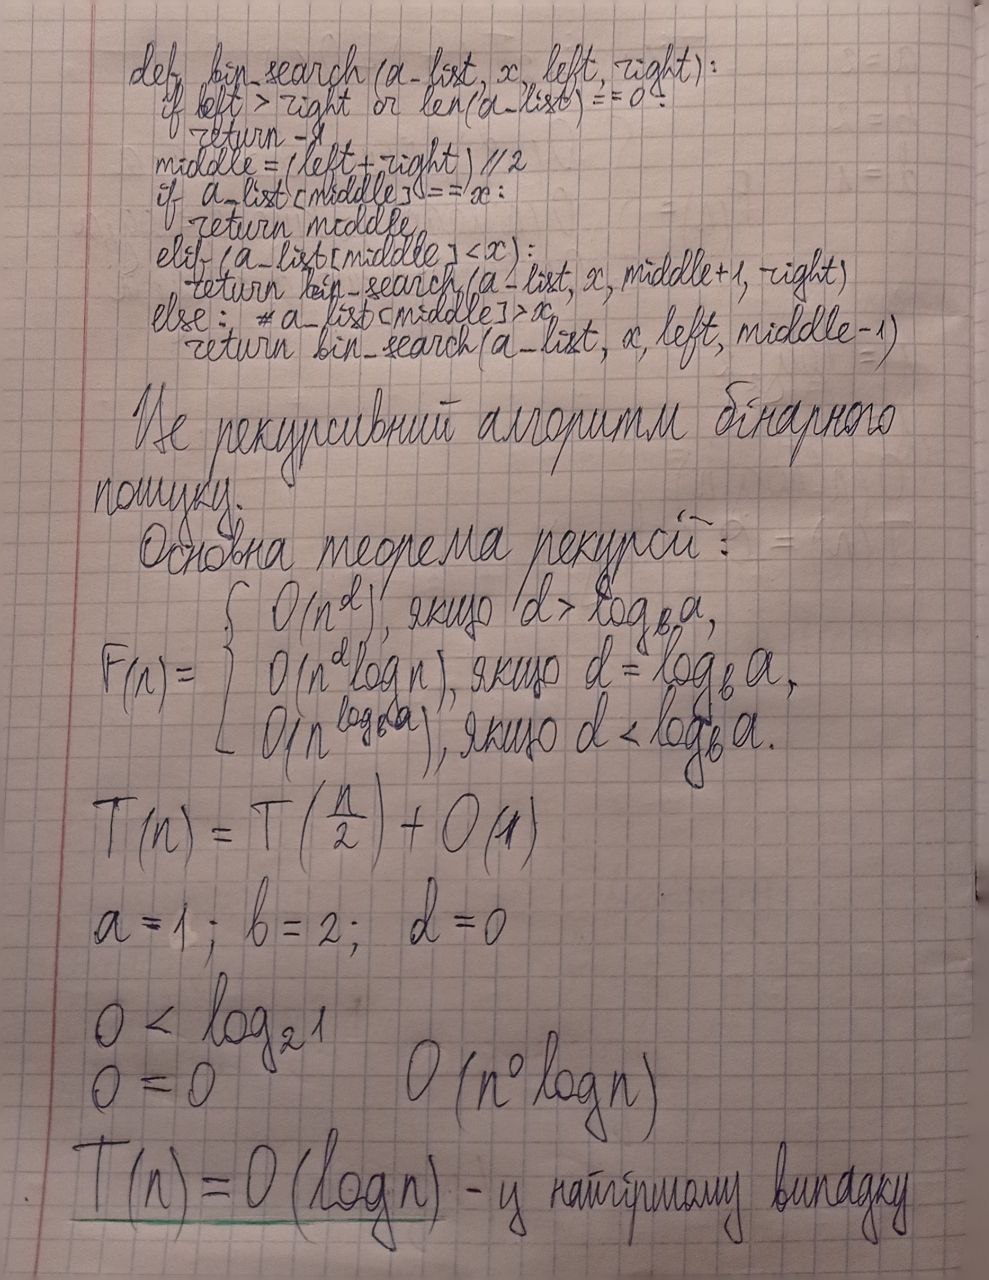 def bin_search(a_list, x, left, right):
if left > right or len(a_list) == 0:
return -1
middle = (left + right) // 2
if a_list[middle] == x:
return middle
elif (a_list[middle] < x):
return bin_search(a_list, x, middle+1, right)
else: # a_list[middle] > x
return bin_search(a_list, x, left, middle-1)
Це рекурсивний алгоритм бінарного
пошуку.
Основна теорема рекурсії:
F(n) = { O(n^d), якщо d > log_b a,
O(n^d log n), якщо d = log_b a,
O(n^{log_b a}), якщо d < log_b a.
T(n) = T(n/2) + O(1)
a = 1; b = 2; d = 0
0 < log_2 1
0 = 0 O(n^0 log n)
T(n) = O(log n) - у найгіршому випадку